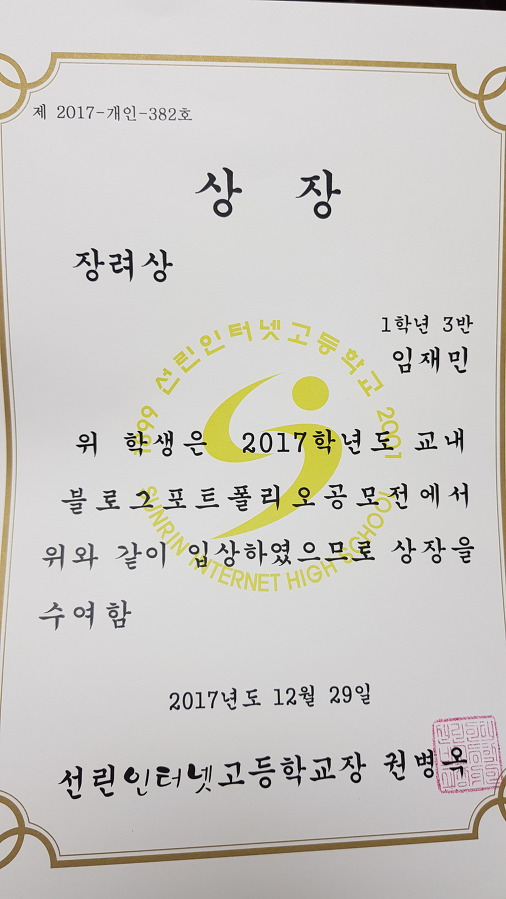 제 2017-개인-382호
상 장
장려상
1학년 3반
임재민
1999 선린인터넷고등학교 2001
SUNRIN INTERNET HIGH SCHOOL
위 학생은 2017학년도 교내
블로그포트폴리오공모전에서
위와 같이 입상하였으므로 상장을
수여함
2017년도 12월 29일
선린인터넷고등학교장 권병옥